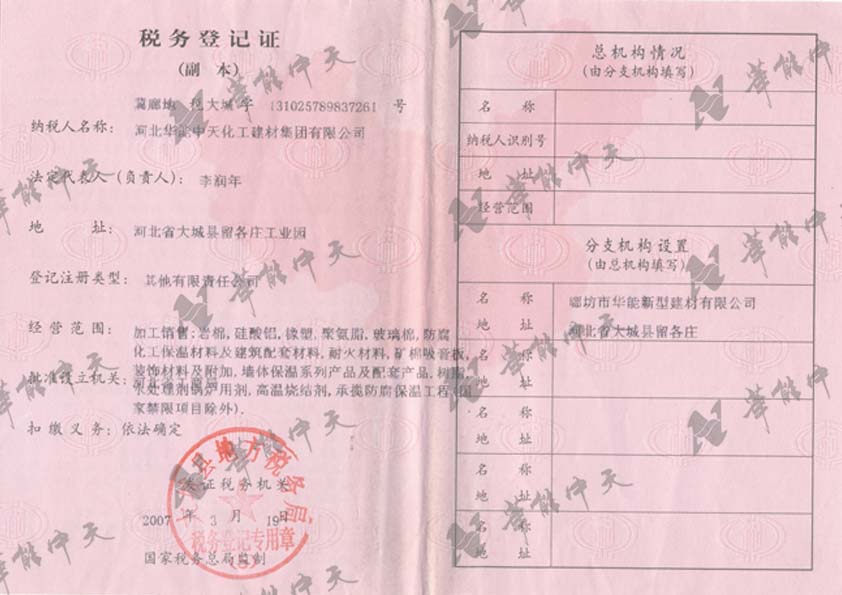 税务登记证
(副 本)
冀廊坊 税大城 字 131025789837261 号
纳税人名称: 河北华能中天化工建材集团有限公司
法定代表人(负责人): 李润年
地 址: 河北省大城县留各庄工业园
登记注册类型: 其他有限责任公司
经营范围: 加工销售:岩棉,硅酸铝,橡塑,聚氨脂,玻璃棉,防腐
化工保温材料及建筑配套材料,耐火材料,矿棉吸音板,
装饰材料及附加,墙体保温系列产品及配套产品,树脂,
水处理剂锅炉用剂,高温烧结剂,承揽防腐保温工程(国
家禁限项目除外).
批准设立机关:
扣缴义务: 依法确定
县地方税务局
税务登记专用章
发证税务机关
2007 年 3 月 19日
国家税务总局监制
总机构情况
(由分支机构填写)
名 称
纳税人识别号
地 址
经营范围
分支机构设置
(由总机构填写)
名 称 廊坊市华能新型建材有限公司
地 址 河北省大城县留各庄
名 称
地 址
名 称
地 址
名 称
地 址
名 称
地 址
华能中天
华能中天
华能中天
华能中天
华能中天
华能中天
华能中天
华能中天
华能中天
华能中天